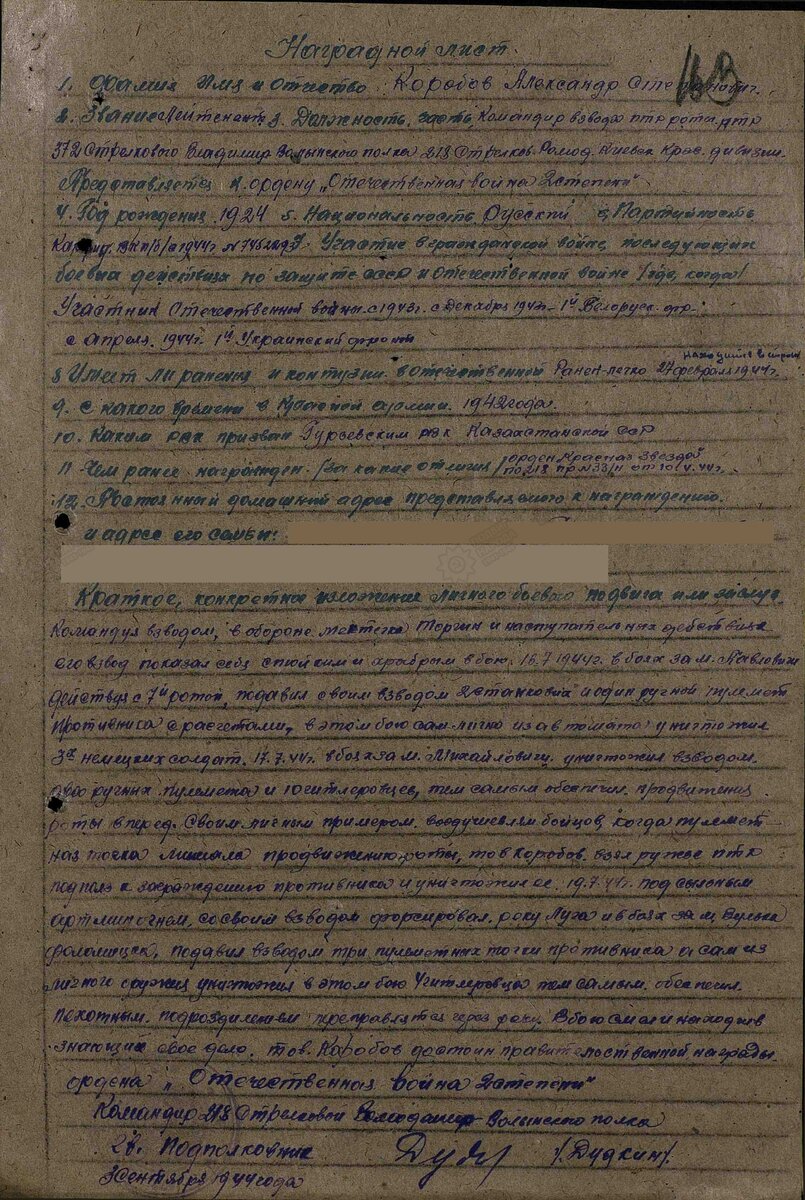 Наградной лист.
183
1. Фамилия Имя и Отчество Коробов Александр Степанович.
2. Звание Лейтенант 3. Должность, часть, Командир взвода птр роты птр
Стрелкового Владимир Волынского полка Стрелков. Ромод. Киевск Крас. дивизии.
Представляется к ордену „Отечественная война 2 степени"
4. Год рождения 1924 5. Национальность Русский 6. Партийность
Кандид. ВКП/б/ с 1944г. № 7. Участие в гражданской войне, последующих
боевых действиях по защите СССР и отечественной войне /где, когда/
Участник Отечественной войны с 1943г. с Декабря 1943г. – 1й Белорусс. фр.
с апреля 1944г. 1й Украинский фронт
8 Имеет ли ранения и контузии в отечественной Ранен легко 27 февраля 1944г.
находился в строю
9. С какого времени в Красной армии. 1942 года.
10. Каким рвк призван Гурьевским рвк Казахстанской ССР
11 Чем ранее награжден /за какие отличия/ орден Красная Звезда
12. Постоянный домашний адрес представляемого к награждению.
и адрес его семьи:
Краткое, конкретное изложение личного боевого подвига или заслуг
Командуя взводом, в обороне местечка Торчин и наступательных действиях
его взвод показал себя стойким и храбрым в бою. 16.7.1944г. в боях за м. Павловичи
действуя с 7й ротой, подавил своим взводом 2 станковых и один ручной пулемет
противника с расчетами, в этом бою сам лично из автомата уничтожил
3х немецких солдат. 17.7.44г. в боях за м. Михайловичи уничтожил взводом
два ручных пулемета и 10 гитлеровцев, тем самым обеспечил продвижения
роты вперед. Своим личным примером воодушевлял бойцов, когда пулемет
ная точка мешала продвижению роты, тов Коробов взял ружье птр
подполз к заграждению противника и уничтожил ее. 19.7.44г. под сильным
артмин огнем, со своим взводом форсировал реку Луга и в боях за м. Вулька
подавил взводом три пулеметных точки противника а сам из
личного оружия уничтожил в этом бою 4 гитлеровца тем самым обеспечил
пехотным подразделениям переправляться через реку. В бою смел и находчив
знающий свое дело. тов. Коробов достоин правительственной награды
ордена „Отечественная война 2 степени"
Командир Стрелковой Волынского полка
Подполковник /Дудкин/.
3 Сентября 1944 года